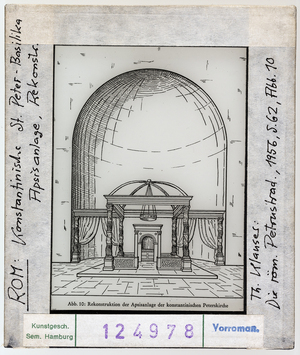 ROM: Konstantinische St. Peter-Basilika
Apsisanlage, Rekonstr.
Abb. 10: Rekonstruktion der Apsisanlage der konstantinischen Peterskirche
Th. Klauser:
Die röm. Petrustrad., 1956, S. 62, Abb. 10
Kunstgesch.
Sem. Hamburg
124978
Vorromaß.